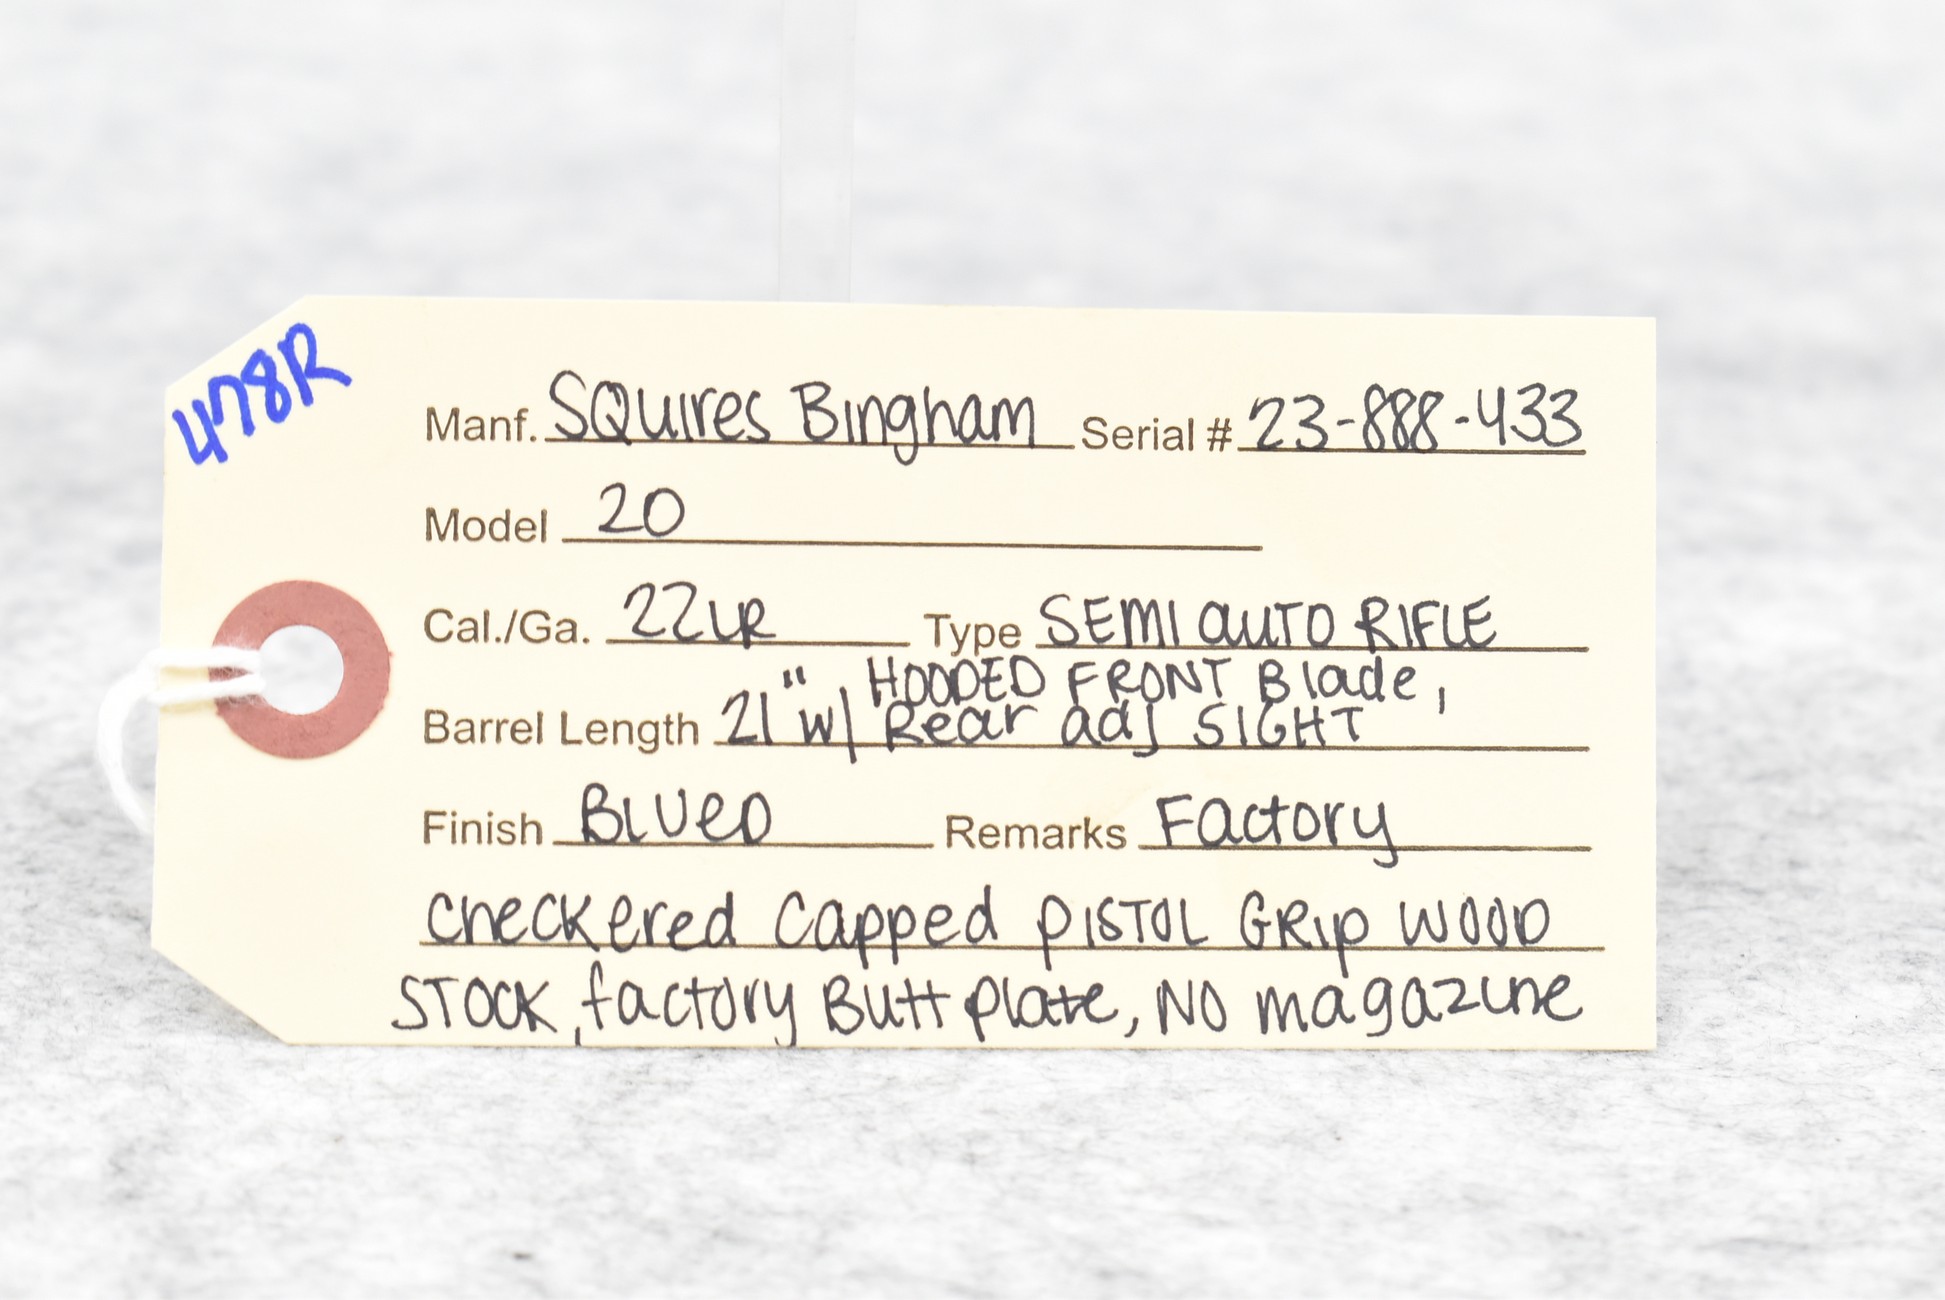 478R
Manf. SQuires Bingham Serial # 23-888-433
Model 20
Cal./Ga. 22LR Type SEMI auTO RIFLE
HOODED FRONT Blade,
Barrel Length 21" w/ Rear adj SIGHT
Finish BLUeD Remarks Factory
checkered capped pISTOL GRip WOOD
STOCK, factory Butt plate, NO magazine